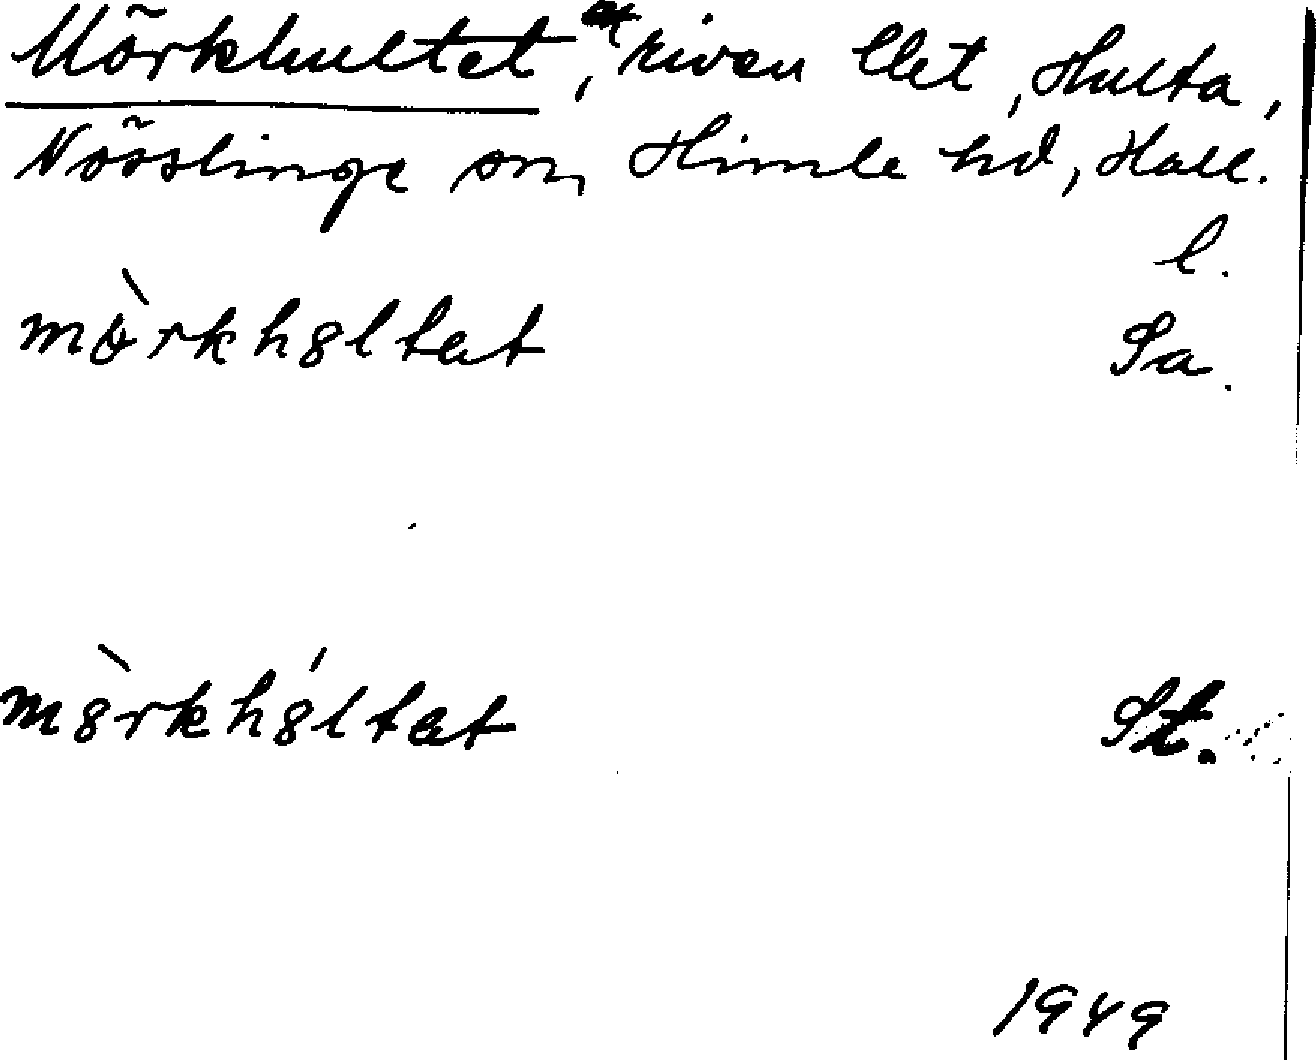 Mörkhultet, riven llet, Hulta,
Nösslinge sn, Himle hd, Hall.
l.
mòrkh8ltat Sa.
m8̀rkh8́ltat St.
1949